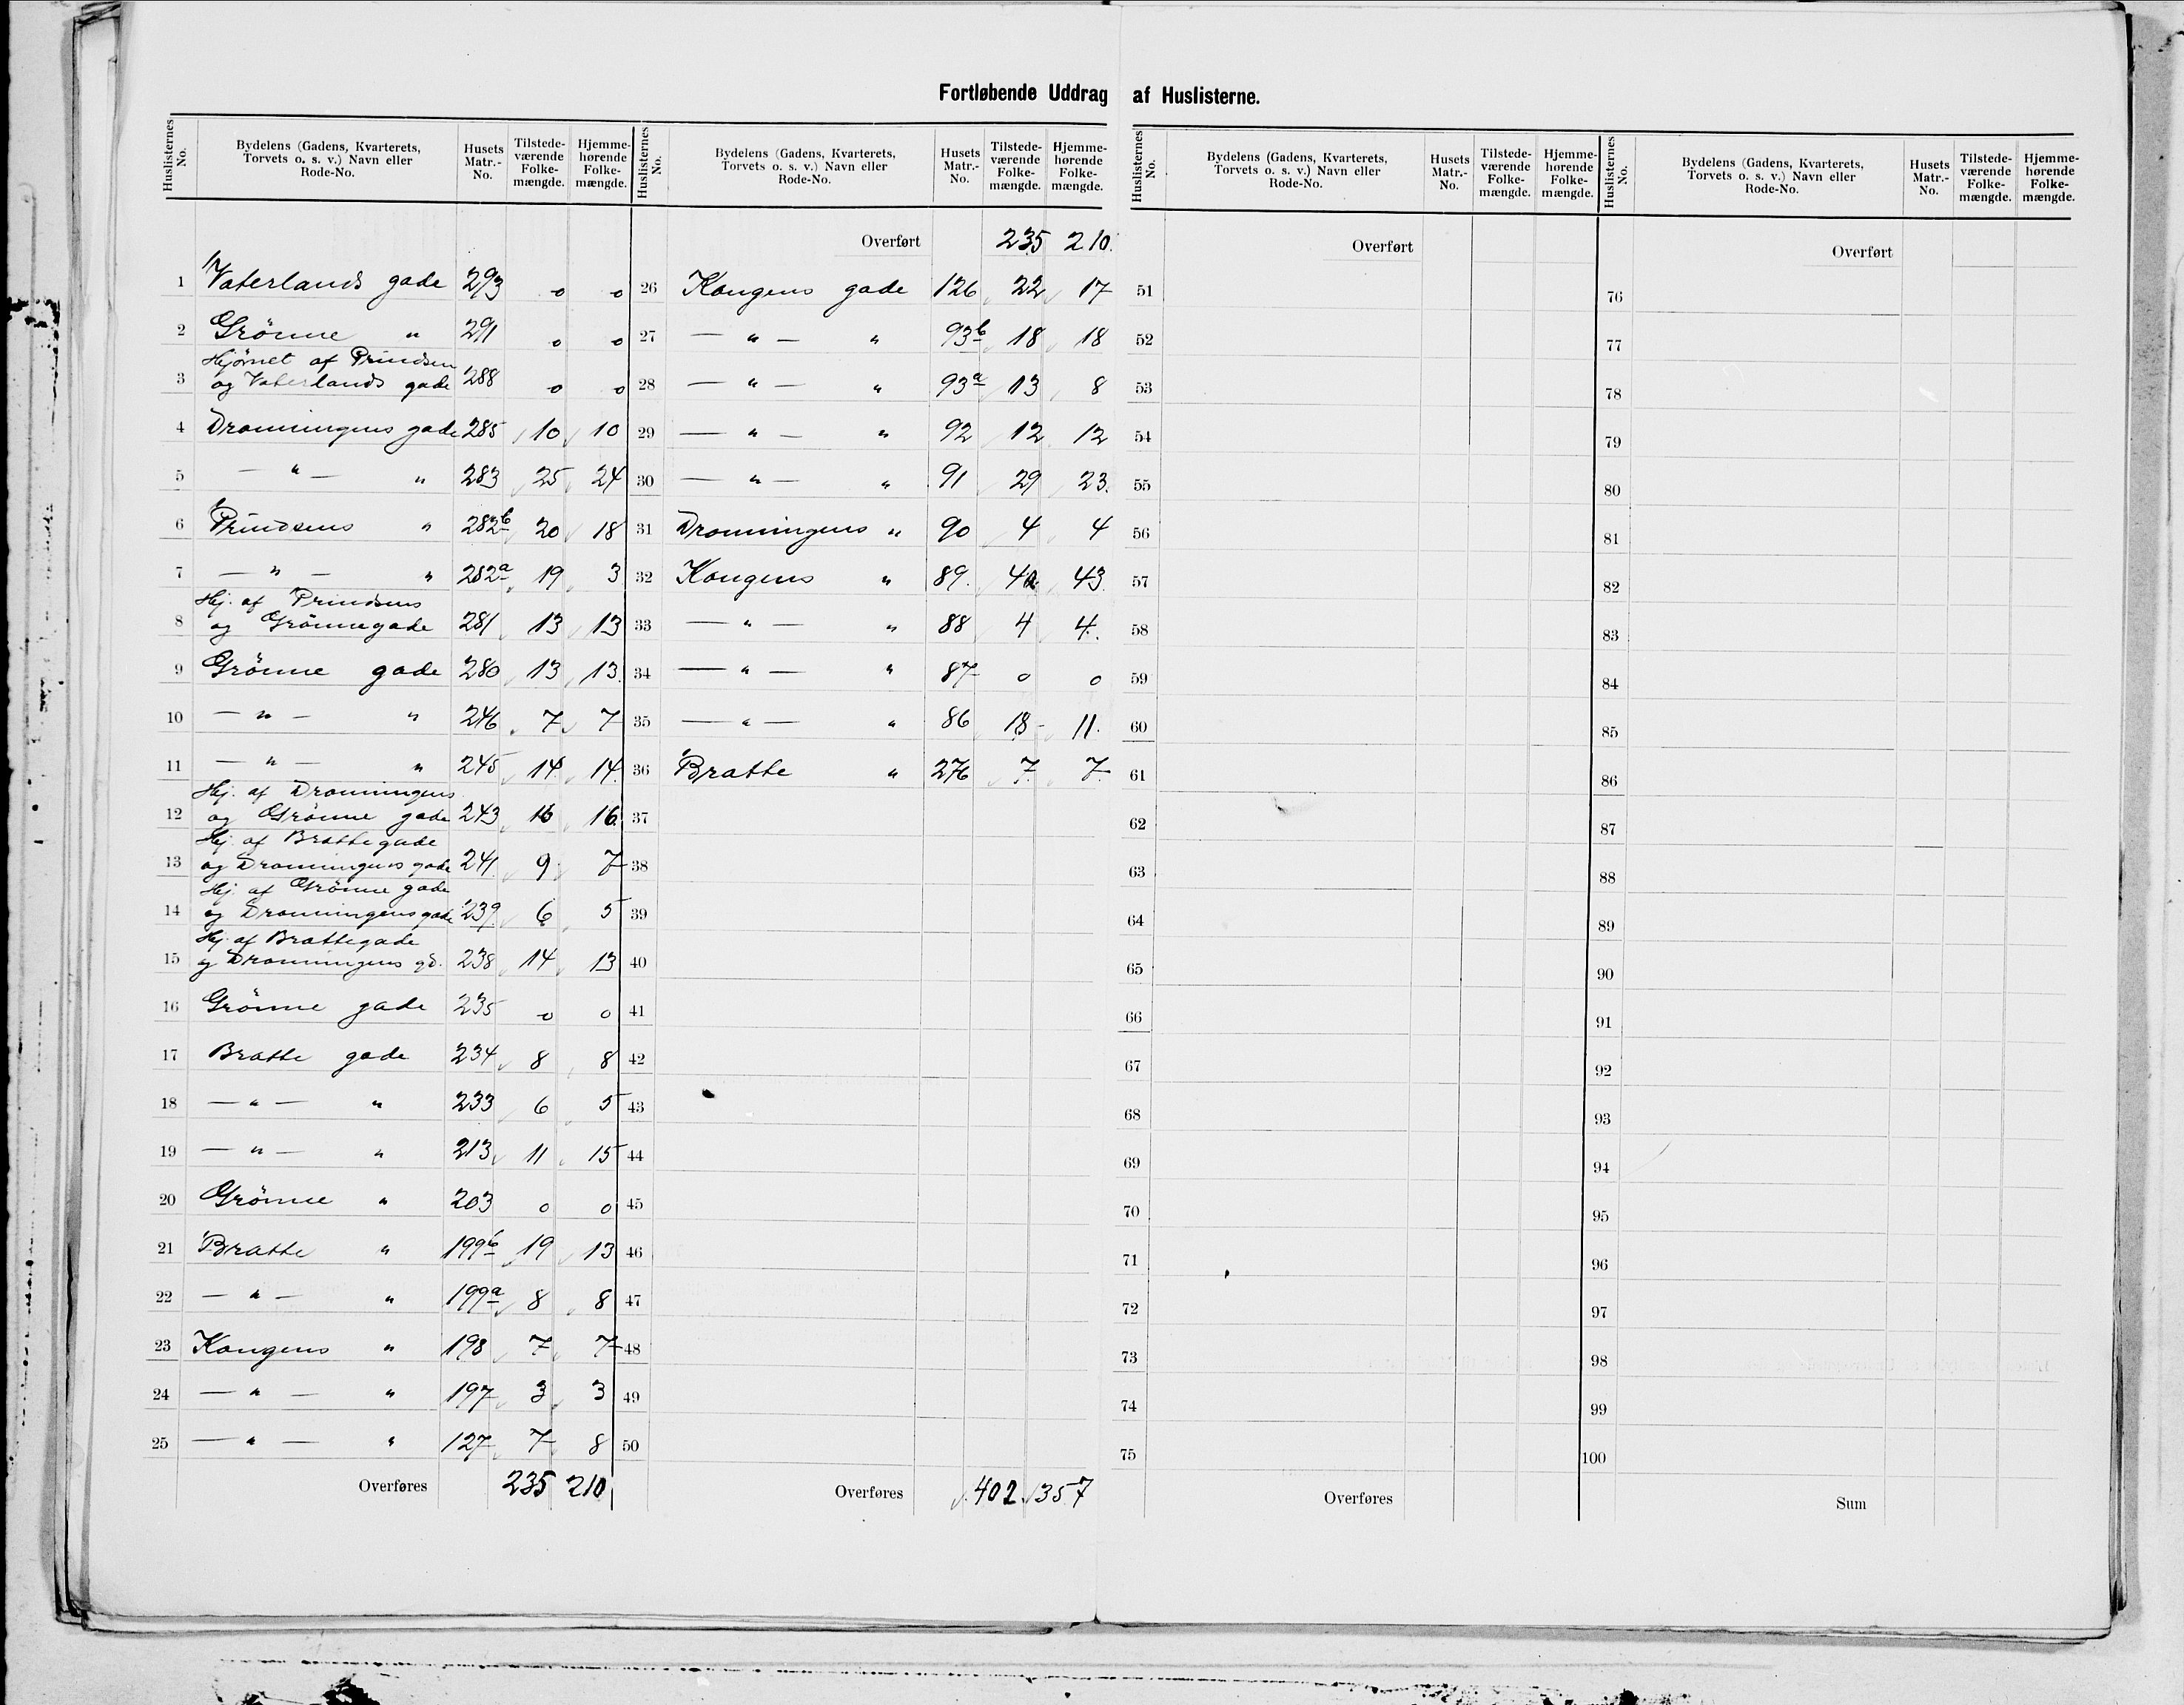 Fortløbende Uddrag af Huslisterne.
Huslisternes No. Bydelens (Gadens, Kvarterets, Torvets o. s. v.) Navn eller Rode-No. Husets Matr.-No. Tilstede-værende Folke-mængde. Hjemme-hørende Folke-mængde.
1 Vaterlands gade 293 0 0
2 Grönne " 291 0 0
Hjörnet af Prindsen
3 og Vaterlands gade 288 0 0
4 Dronningens gade 285 10 10
5 — " — " 283 25 24
6 Prindsens " 282b 20 18
7 — " — " 282a 19 3
Hj. af Prindsens
8 og Grönnegade 281 13 13
9 Grönne gade 280 13 13
10 — " — " 246 7 7
11 — " — " 245 14 14
Hj. af Dronningens
12 og Grönne gade 243 16 16
Hj. af Brattegade
13 og Dronningens gade 241 9 7
Hj. af Grönne gade
14 og Dronningens gade 239 6 5
Hj. af Brattegade
15 og Dronningens gd. 238 14 13
16 Grönne gade 235 0 0
17 Bratte gade 234 8 8
18 — " — " 233 6 5
19 — " — " 213 11 15
20 Grönne " 203 0 0
21 Bratte " 199b 19 13
22 — " — " 199a 8 8
23 Kongens " 198 7 7
24 — " — " 197 3 3
25 — " — " 127 7 8
Overføres 235 210
Huslisternes No. Bydelens (Gadens, Kvarterets, Torvets o. s. v.) Navn eller Rode-No. Husets Matr.-No. Tilstede-værende Folke-mængde. Hjemme-hørende Folke-mængde.
Overført 235 210
26 Kongens gade 126 22 17
27 — " — " 93b 18 18
28 — " — " 93a 13 8
29 — " — " 92 12 12
30 — " — " 91 29 23
31 Dronningens " 90 4 4
32 Kongens " 89 43
33 — " — " 88 4 4
34 — " — " 87 0 0
35 — " — " 86 18 11
36 Bratte " 276 7 7
37
38
39
40
41
42
43
44
45
46
47
48
49
50
Overføres 402 357
Huslisternes No. Bydelens (Gadens, Kvarterets, Torvets o. s. v.) Navn eller Rode-No. Husets Matr.-No. Tilstede-værende Folke-mængde. Hjemme-hørende Folke-mængde.
Overført
51
52
53
54
55
56
57
58
59
60
61
62
63
64
65
66
67
68
69
70
71
72
73
74
75
Overføres
Huslisternes No. Bydelens (Gadens, Kvarterets, Torvets o. s. v.) Navn eller Rode-No. Husets Matr.-No. Tilstede-værende Folke-mængde. Hjemme-hørende Folke-mængde.
Overført
76
77
78
79
80
81
82
83
84
85
86
87
88
89
90
91
92
93
94
95
96
97
98
99
100
Sum